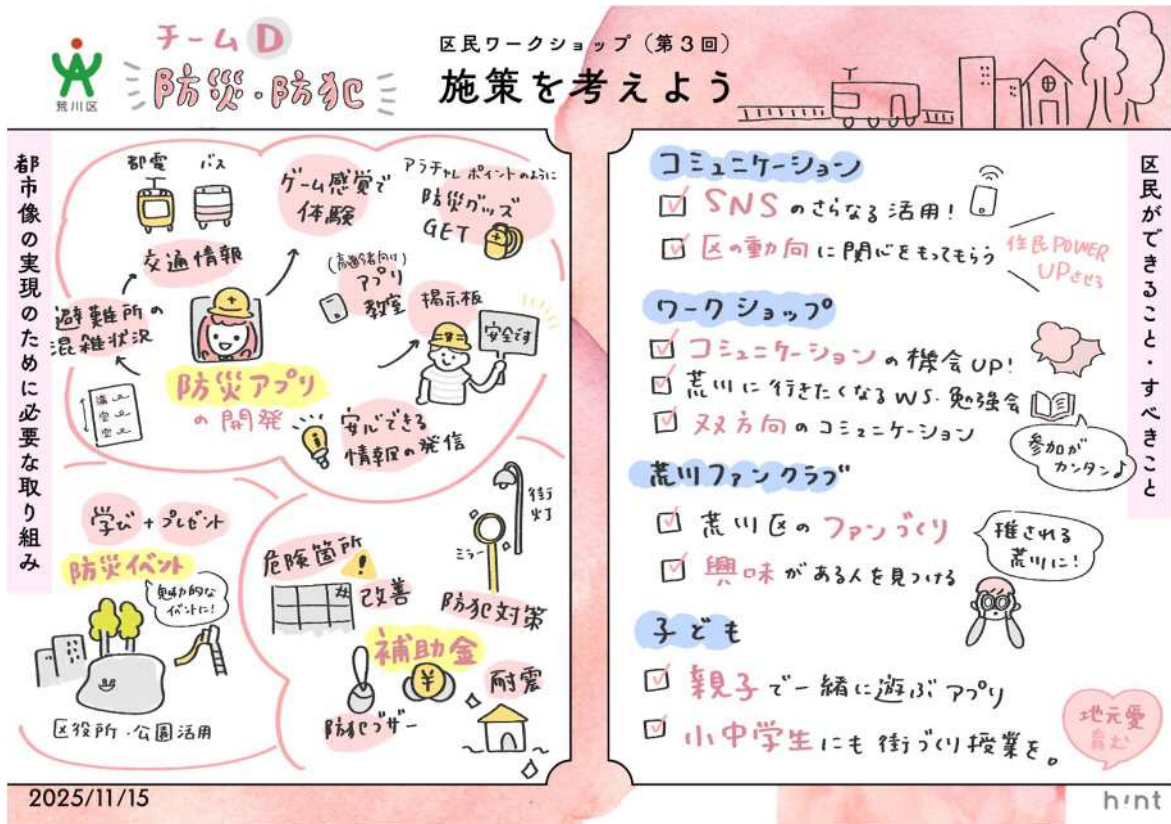 荒川区
チーム D
防災・防犯
区民ワークショップ（第3回）
施策を考えよう
都市像の実現のために必要な取り組み
都電
バス
ゲーム感覚で
体験
アラチャレ ポイントのように
防災グッズ
GET
交通情報
(高齢者向け)
アプリ
教室
掲示板
安全です
避難所の
混雑状況
満
空
空
防災アプリ
の開発
安心できる
情報の発信
学び + プレゼント
防災イベント
魅力的な
イベントに!
区役所・公園活用
街灯
ミラー
危険箇所
改善
防犯対策
補助金
¥
耐震
防犯ブザー
区民ができること・すべきこと
コミュニケーション
SNSのさらなる活用!
区の動向に関心をもってもらう
住民POWER
UPさせる
ワークショップ
コミュニケーションの機会UP!
荒川に行きたくなるWS・勉強会
双方向のコミュニケーション
参加が
カンタン♪
荒川ファンクラブ
荒川区のファンづくり
興味がある人を見つける
推される
荒川に!
子ども
親子で一緒に遊ぶアプリ
小中学生にも街づくり授業を。
地元愛
育む
2025/11/15
h!nt